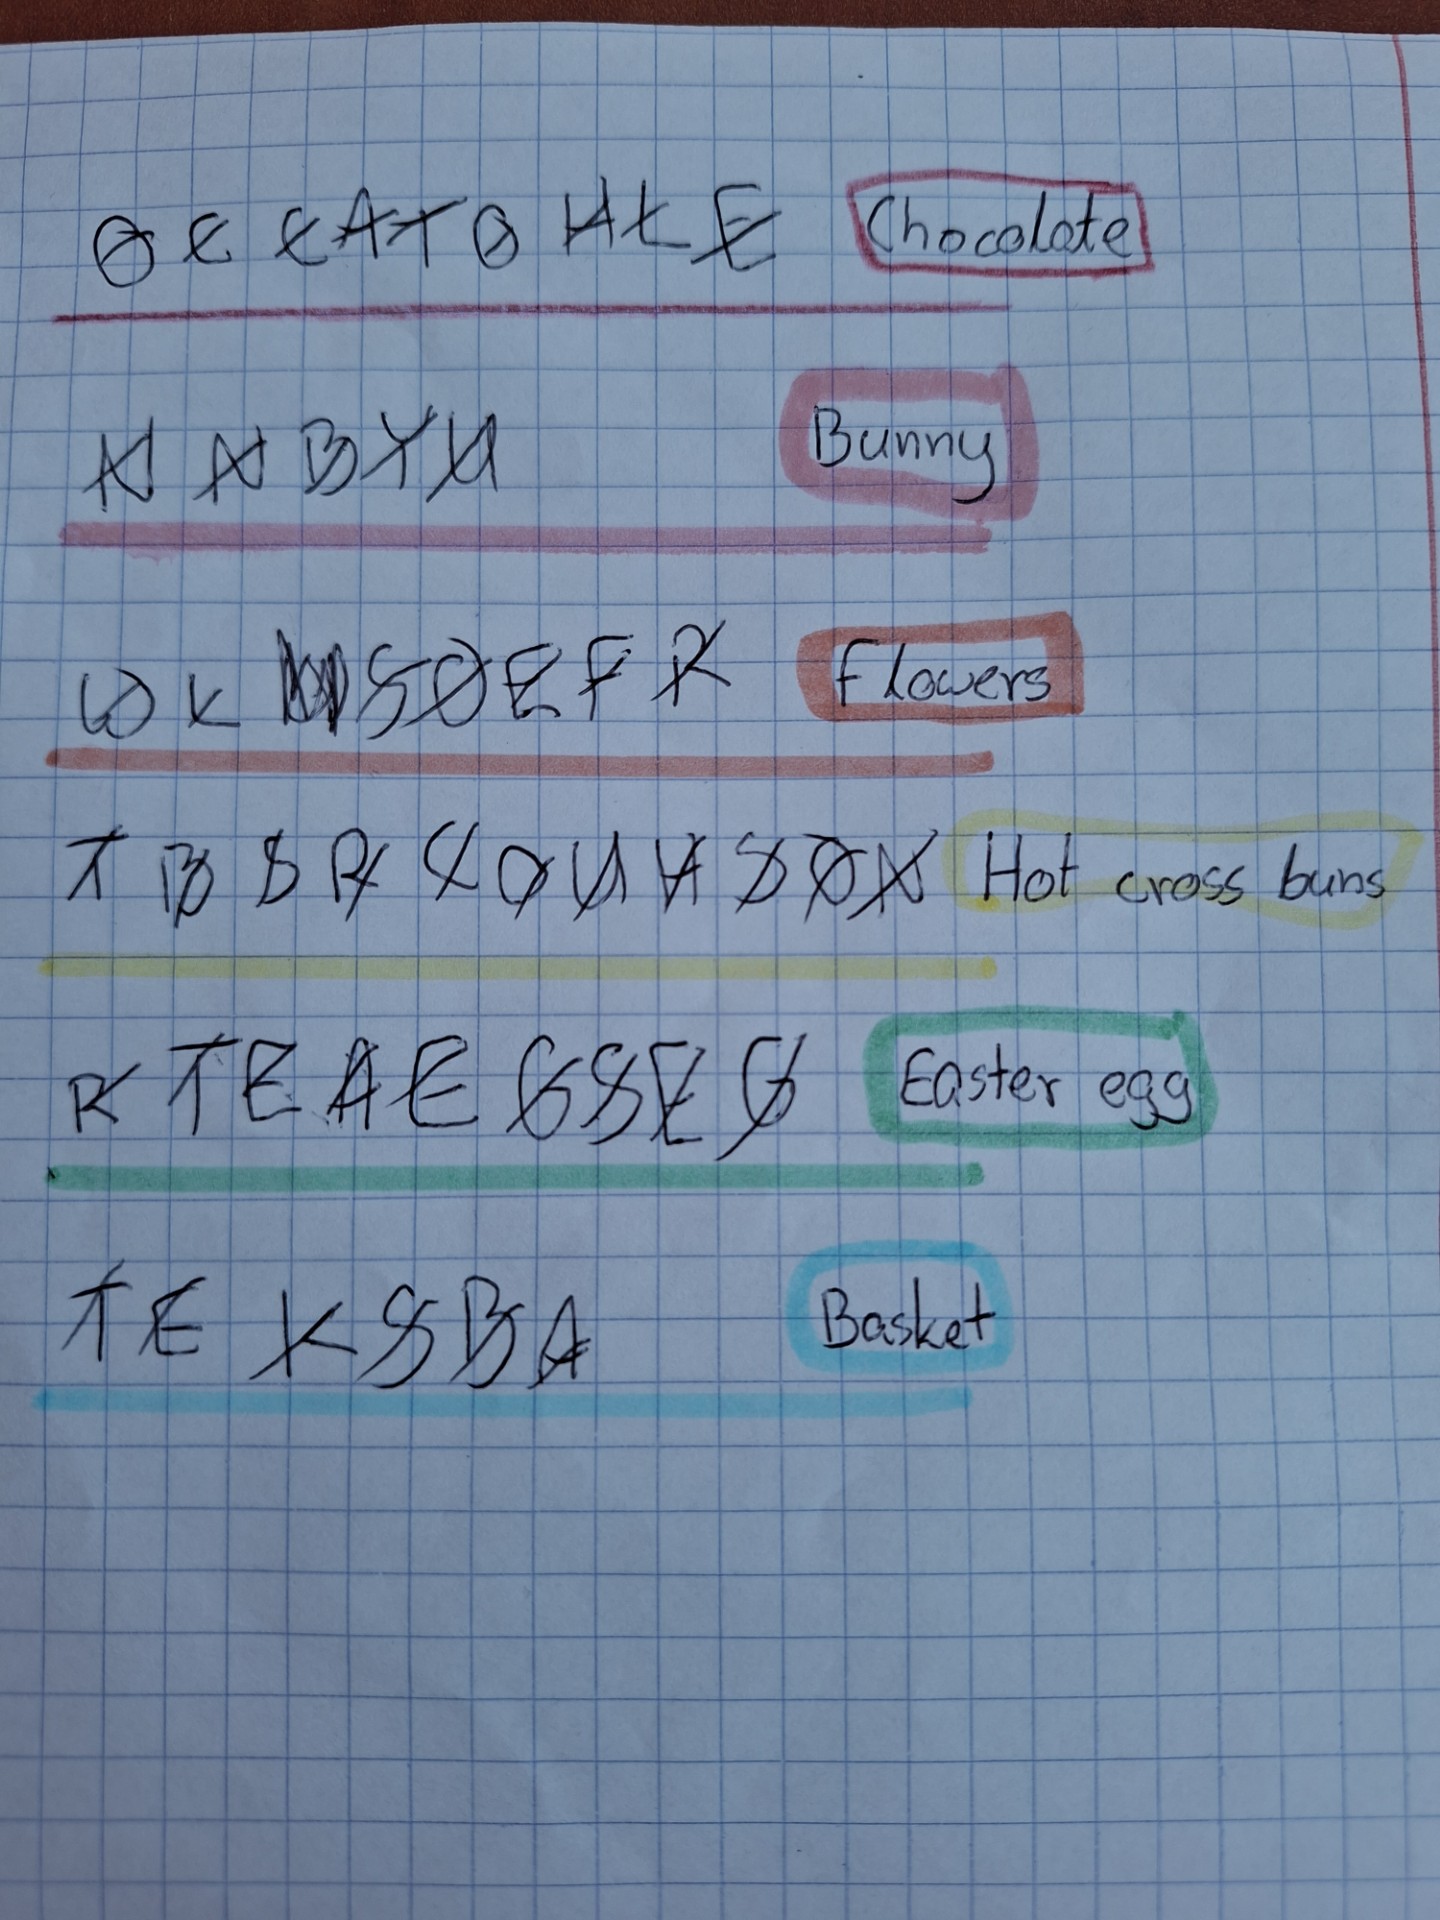 O C C A T O H L E Chocolate
N N B Y U Bunny
W L S O E F R Flowers
T B S R C O U H S O N Hot cross buns
R T E A E G S E G Easter egg
T E K S B A Basket